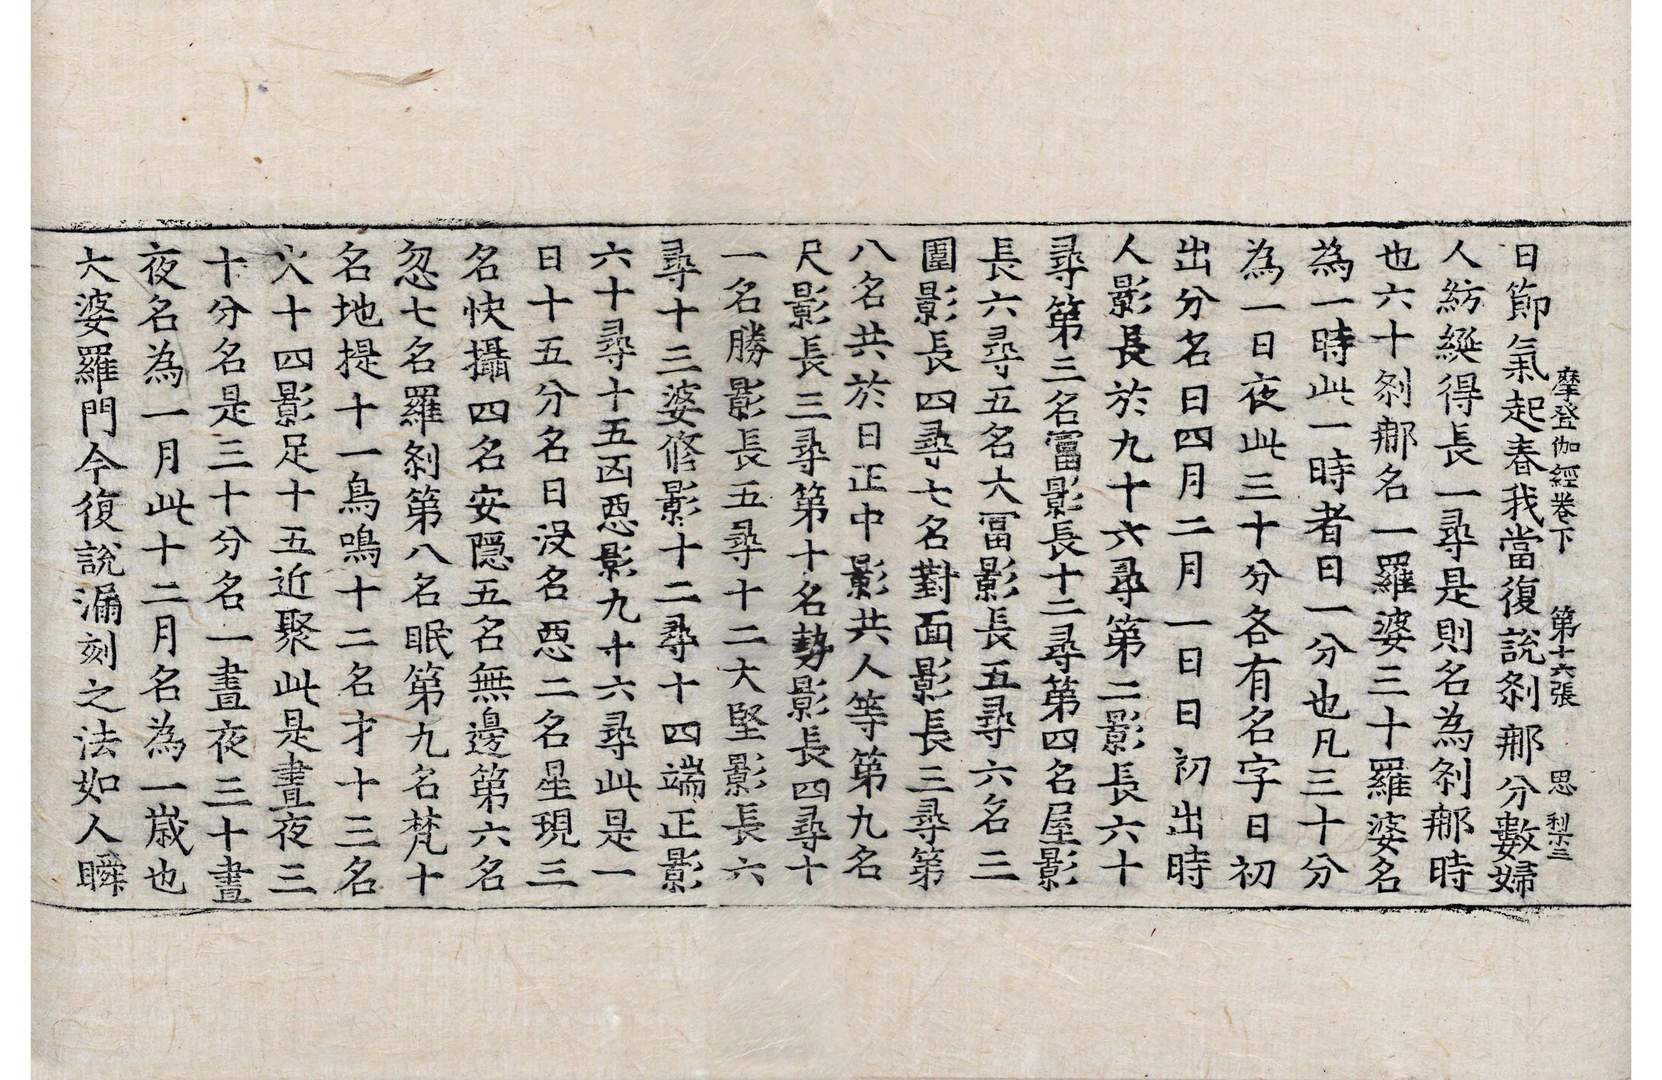 摩登伽經卷下 第十六張 思 梨三
日節氣起春我當復說剎那分數婦
人紡綖得長一尋是則名為剎那時
也六十剎那名一羅婆三十羅婆名
為一時此一時者日一分也凡三十分
為一日夜此三十分各有名字日初
出分名日四月二月一日日初出時
人影長於九十六尋第二影長六十
尋第三名富影長十二尋第四名屋影
長六尋五名大冨影長五尋六名三
圍影長四尋七名對面影長三尋第
八名共於日正中影共人等第九名
尺影長三尋第十名勢影長四尋十
一名勝影長五尋十二大堅影長六
尋十三婆脩影十二尋十四端正影
六十尋十五凶惡影九十六尋此是一
日十五分名日沒名惡二名星現三
名快攝四名安隱五名無邊第六名
忽七名羅剎第八名眠第九名梵十
名地提十一鳥鳴十二名才十三名
火十四影足十五近聚此是晝夜三
十分名是三十分名一晝夜三十晝
夜名為一月此十二月名為一歲也
大婆羅門今復說漏刻之法如人瞬